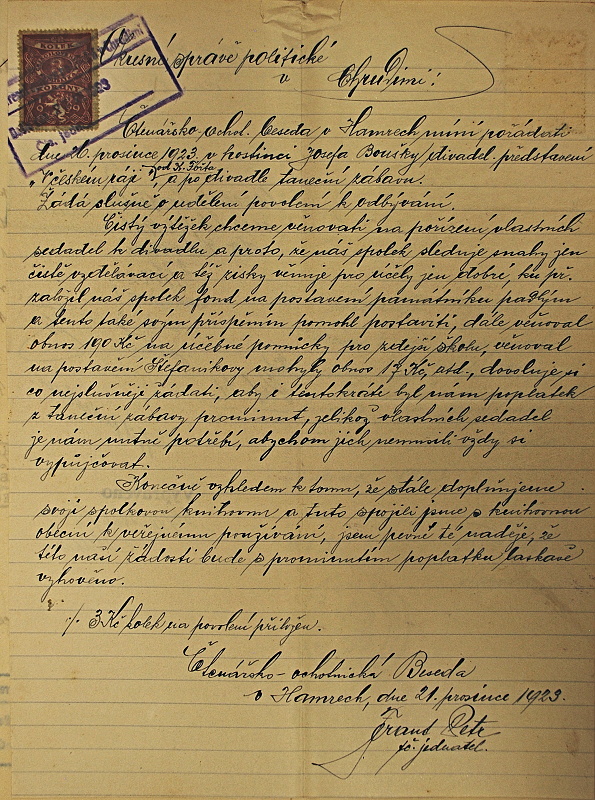 KOLEK
kresní správě politické
v Chrudimi!
Čtenářsko-ochot. Beseda v Hamrech míní pořádati
dne 26. prosince 1923 v hostinci Josefa Boušky divadel. představení
od K. Fořta
"V českém ráji", a po divadle taneční zábavu.
Žádá slušně o udělení povolení k odbývání.
Čistý výtěžek chceme věnovati na pořízení vlastních
sedadel k divadlu a proto, že náš spolek sleduje snahy jen
čistě vzdělávací a též zisky věnuje pro účely jen dobré, ku př.
založil náš spolek fond na postavení památníku padlým
a tento také svým přispěním pomohl postaviti, dále věnoval
obnos 190 Kč na učebné pomůcky pro zdejší školu, věnoval
na postavení Štefanikovy mohyly obnos Kč, atd., dovoluje si
co nejslušněji žádati, aby i tentokráte byl nám poplatek
z taneční zábavy prominut, jelikož vlastních sedadel
je nám nutně potřebí, abychom jich nemusili vždy si
vypůjčovat.
Konečně vzhledem k tomu, že stále doplňujeme
svoji spolkovou knihovnu a tuto spojili jsme s knihovnou
obecní k veřejnému používání, jsem pevné té naděje, že
této naší žádosti bude s prominutím poplatku laskavě
vyhověno.
./. 3 Kč kolek na povolení přiložen.
Čtenářsko-ochotnická Beseda
v Hamrech, dne 21. prosince 1923.
Petr
t.č. jednatel.